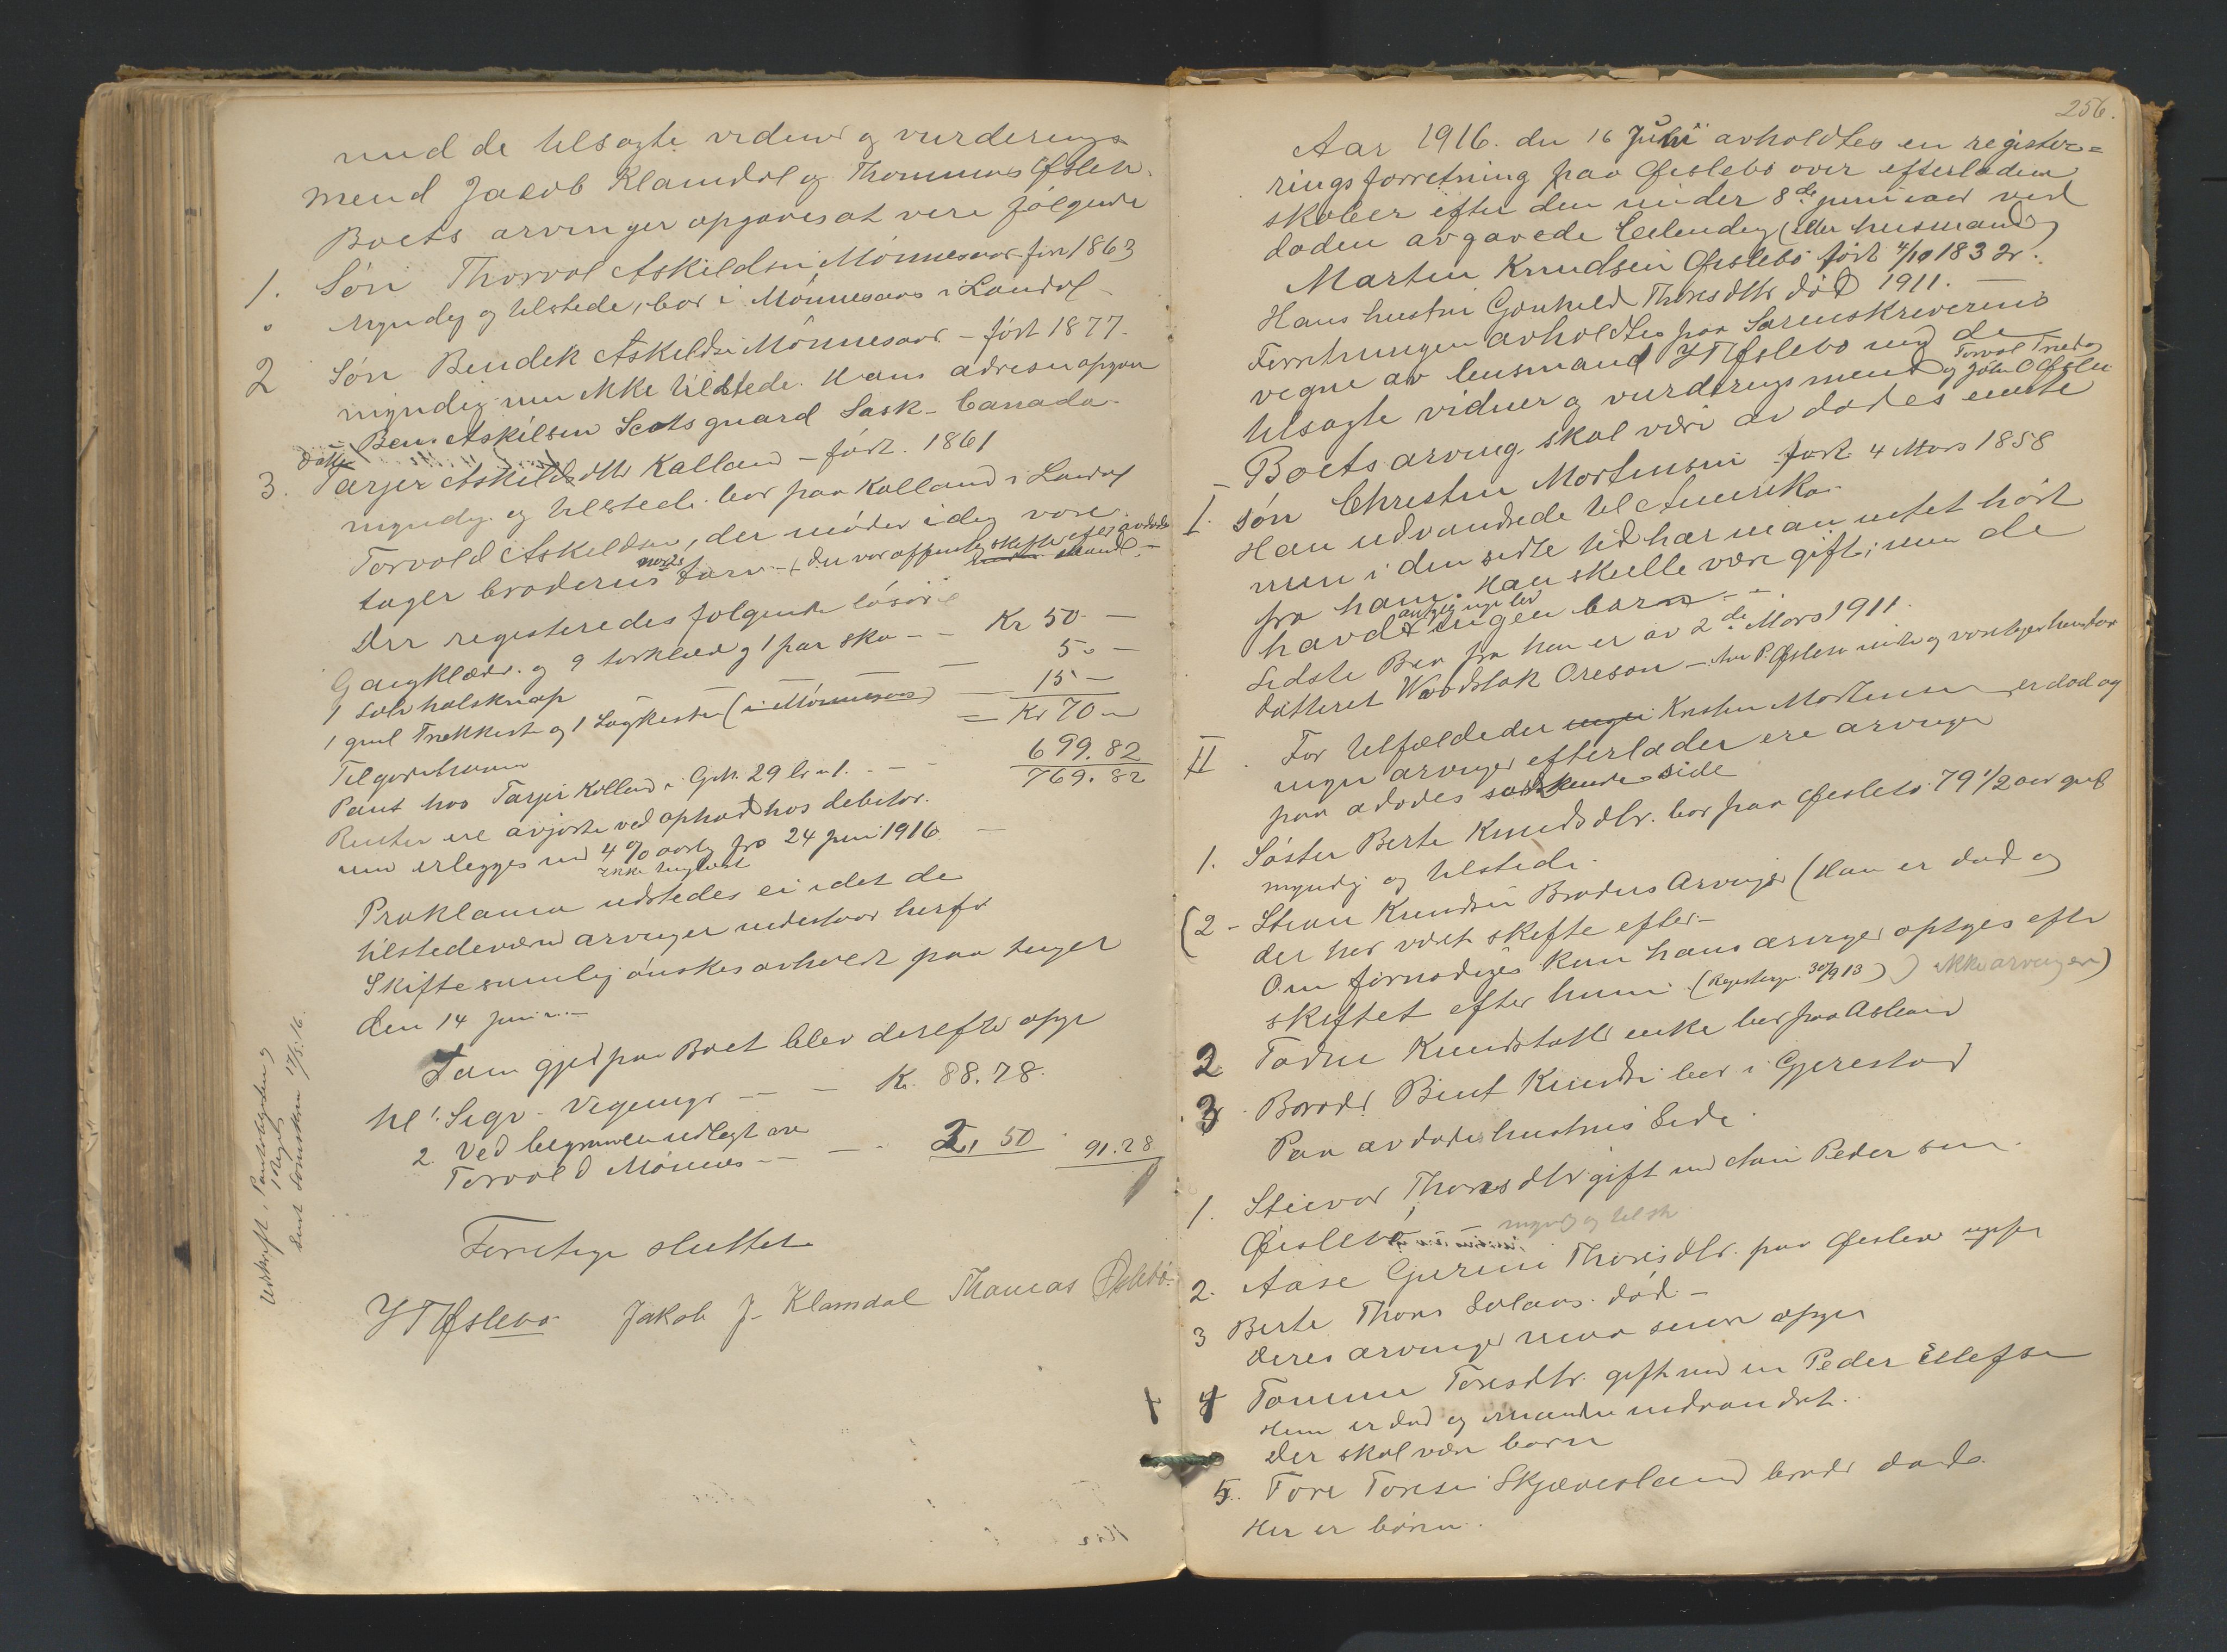 med de tilsagte vidner og vurderings
mend Jacob Klamdal og Thommas Øslen.
Boets arvinger opgaves at vere følgende
1. Søn Thorvol Askildsen Mønnesaas før 1863
myndig og tilstede, bor i Mønnesaas i Laudal
2 Søn Bendek Askeldsen Mønnesaas - født 1877.
myndig men ikke tilstede. Hans adresse opgav
Ben Askilsen Scotsguard Sask - Canada
3. datter Tarjer Askildsdtr Kalland - født. 1861
myndig og tilstede. bor paa Kalland i Laudal
Torvold Askeldsen, der møder i dag vare
tager broderens tarv - (der var offentlig skifte efter avdøde
Der registeredes følgende løsøre
Gangklæder. og 9 torklæd og 1 par sko - - Kr 50 -
1 Sølv halsknap 5 -
1 gml Trækkiste og 1 Lagkiste (i Mønnesaas) - 15 -
= Kr 70 -
Tilgodehavn
Pant hos Tarjer Kolland i Gdh. 29 br n 1. - - 699.82
769.82
Renter ere avgjorte ved ophold hos debitor.
men erlegges med 4 % aarlig fra 24 juni 1916 -
ikke tinglæst
Proklama udstedes ei idet de
tilstedeværend arvinger indestaar herfor
Skiftesamling ønskes avholdt paa tinget
den 14 juni -
Som gjeld paa Boet blev derefter opgi
til 1. Sigv - Vigemyr - - Kr. 88.78.
2. Ved begravelsen udlegt av
Torvold Mønnes - - - 2, 50 91.28
Forretnge sluttet
Y T Øslebø Jakob J. Klamdal Thomas Øslebø
Udskrift i Panteregistre og
sent Sorenskr 17/8.16.
256.
Aar 1916. den 16 Juni avholdtes en register=
rings forretning paa Øislebø over efterladen
skaber efter den under 8de juni aar ved
døden avgaaede Eilendig (eller husmand)
Martin Knudsen Øislebø født 4/10 1832.
Hans hustru Gønhild Thoresdtr død 1911. -
Forretningen avholdtes paa Sorenskriverens
vegne av lensmand Y T Øslebø med de
tilsagte vidner og vurderings mend Torvol Tveda og John O Øslen
- Boets arving skal være av dødes eneste
I. Søn Christen Mortensen født 4 Mars 1858
Han udvandrede til Amerika.
men i den sidste tid har man intet hørt
fra ham. Han skulle være gift; men de
havde angivelig ingen barn - -
Sidste Brev fra han er av 2de Mars 1911.
datteret Woodstok Oreson -
II. For tilfælde der Kristen Mortensen er død og
ingen arvinger efterlader ere arvinger
paa adødes søskendes side
1. Søster Berte Knudsdtr. bor paa Øislebø 79 1/2 aar gml
myndig og tilstede.
(2 - Stian Knudsen Broders Arvinger (Han er død og
der har været skifte efter. -
Om fornødiges kan hans arvinger optages efter
skiftet efter ham. (Registrger. 30/9 13) ) ikke arvinger)
2 Todne Knudsdatter enke bor paa Asland
3 Broder Bent Knudsen bor i Gjerestad
Paa avdødes hustrus Side.
1. Steevor Thoresdtr gift med Ani Pedersen.
Øislebø - - myndig og tilst
2. Aase Gurine Thoresdtr. paa Øislen
3 Berte Thors Solaas. død. -
Deres arvinger maa senere opgis
4 Tomine Toresdtr. gift med en Peder Ellefsen
Hun er død og manden udvandret.
Der skal være børn
5. Tore Toresen Skjævesland broder død
Her er børn.